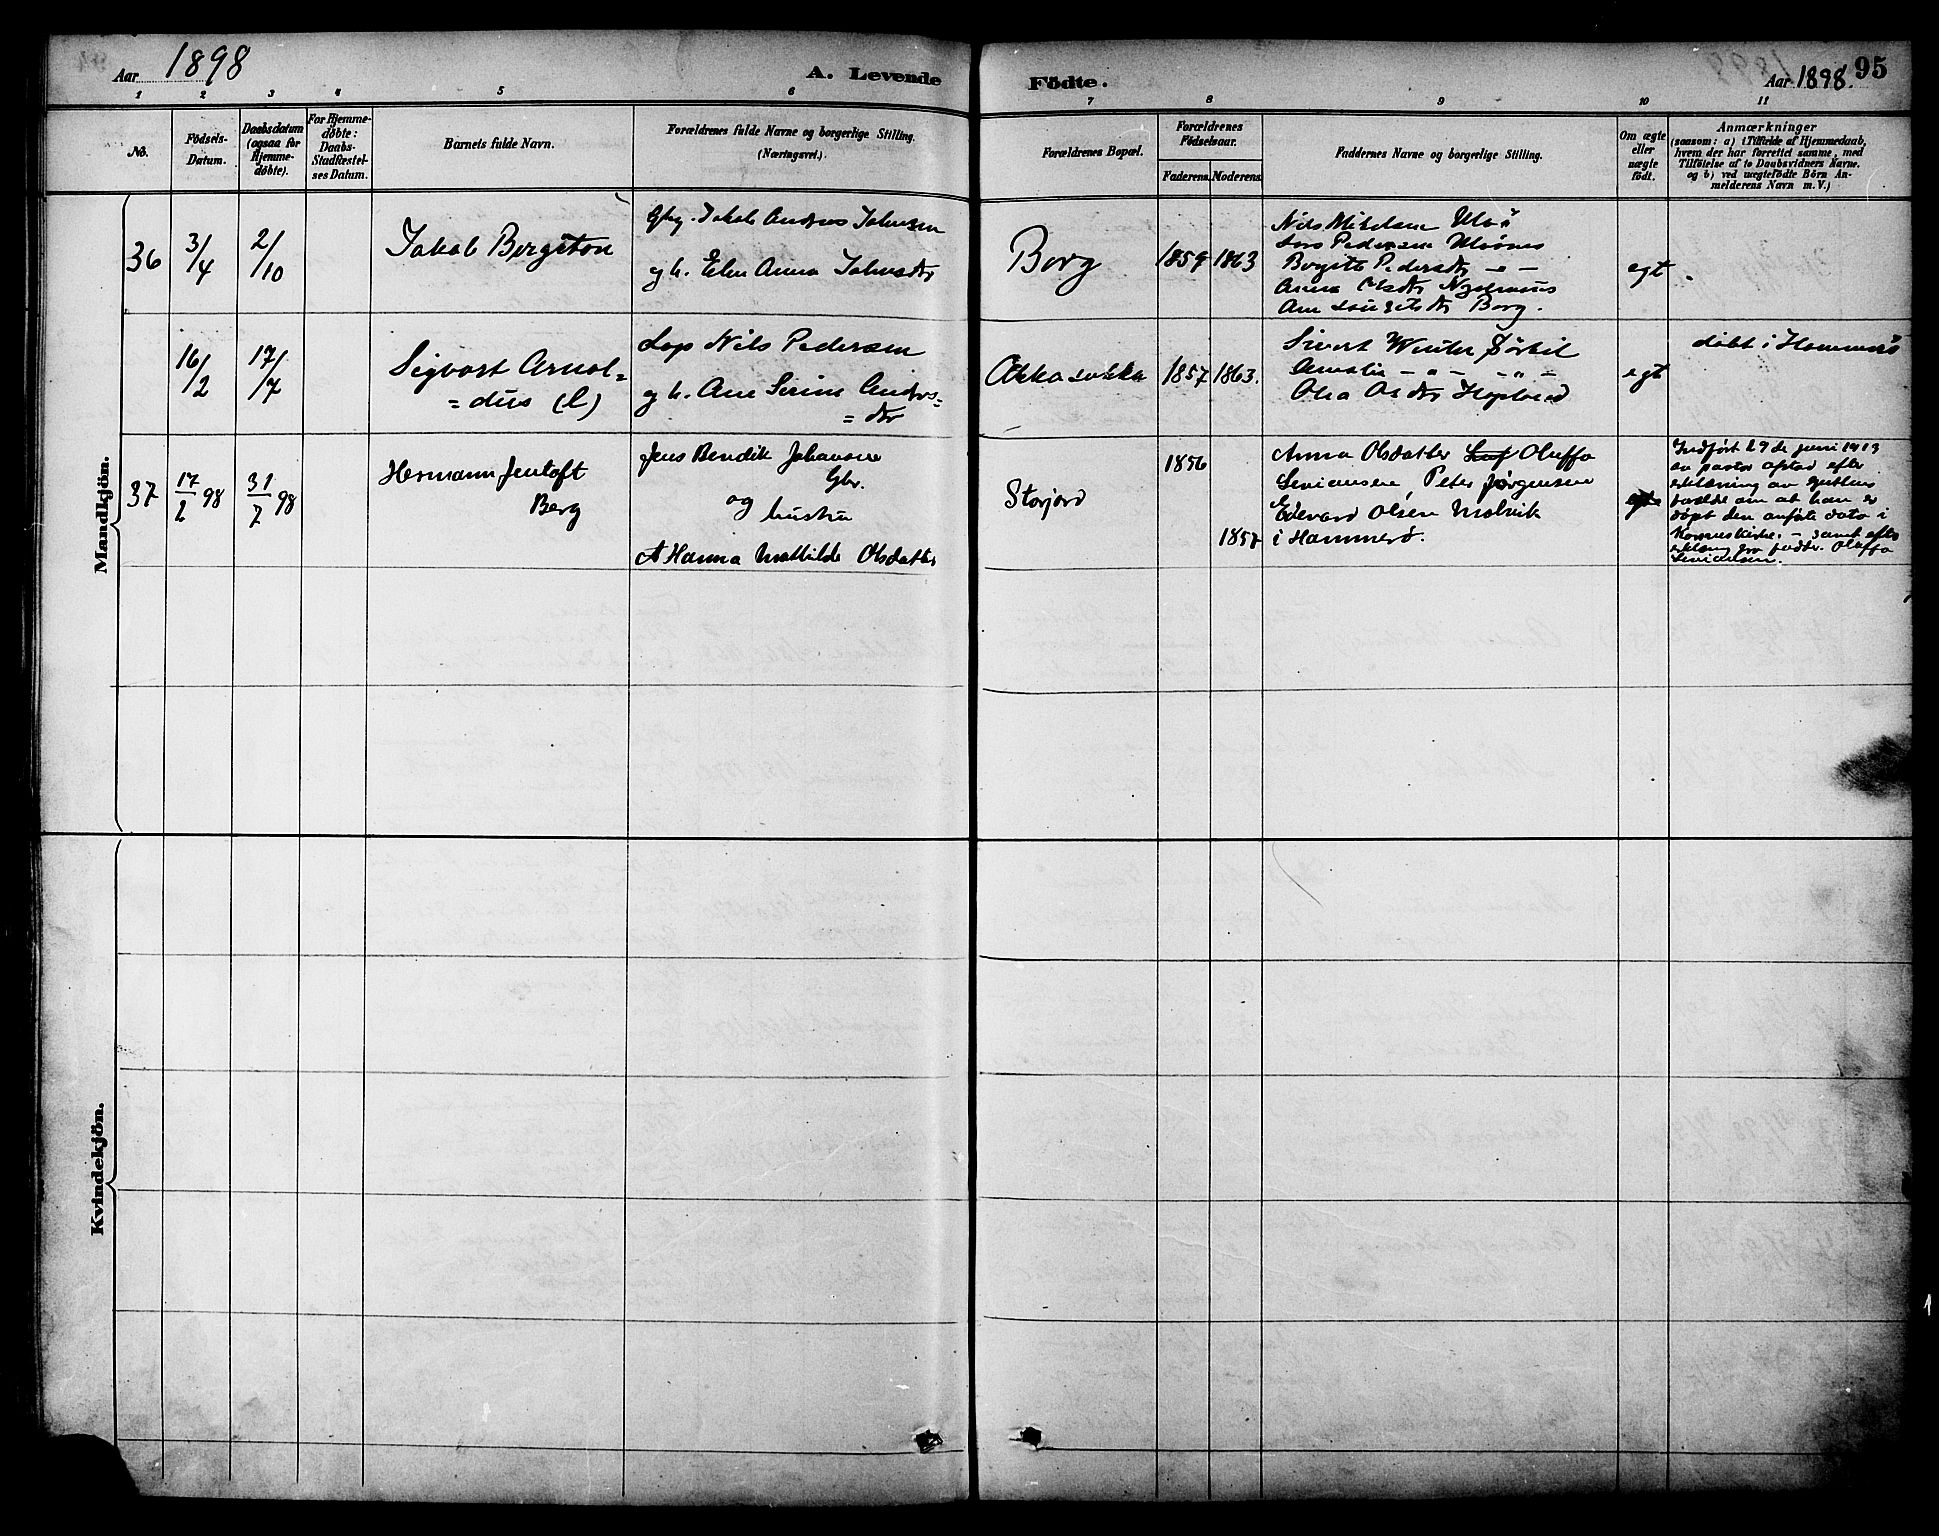 Aar 1898
A. Levende
Födte.
Aar 1898. 95
1 2 3 4 5 6 7 8 9 10 11
No.
Födsels-
Datum.
Daabsdatum
(ogsaa for
Hjemme-
döbte).
For Hjemme-
döbte:
Daabs-
Stadfæstel-
ses Datum.
Barnets fulde Navn.
Forældrenes fulde Navne og borgerlige Stilling.
(Næringsvei.)
Forældrenes Bopæl.
Forældrenes
Födselsaar.
Faderens. Moderens.
Faddernes Navne og borgerlige Stilling.
Om ægte
eller
uægte
födt.
Anmærkninger
(saasom: a) i Tilfælde af Hjemmedaab,
hvem der har forrettet samme, med
Tilföielse af to Daabsvidners Navne.
og b) ved uægtefödte Börn An-
melderens Navn m. V.)
Mandkjön.
36
3/4
2/10
Jakob Bergiton
Gbg. Jakob Andreas Johnsen
g h. Elen Anna Johnsdtr
Borg
1859 1863
Nils Mikelsen
Lars Pedersen
Pedersdtr – " –
Anna Olsdtr
Ane Borg.
egt
16/2
17/7
Sigvart Arnol=
= dus (l)
Lap Nils Pedersen
g h. Ane Serine Andrs=
= dtr
1857 1863.
Sivert Winter Sörkil
Amalie – " – – " –
Olsdtr
egt
døbt i Hammerö
37
17/2 98
31/7 98
Hermann Jentoft
Berg
Jens Bendik Johansen
Gbr.
og
hustru
Hanna Mathilde Olsdatter
Storjord
1856
1857
Anna Olsdatter Oluffa
Seviansen, Peter Jørgensen
Edevard Olsen Molvik
i Hammerø.
egt
Indført 29de juni 1919
av pastor efter
erklæring av guttens
forældre om at han er
døpt den anførte dato i
– samt efter
erklæring fra fadder Oluffa
Sevianssen.
Kvindekjön.